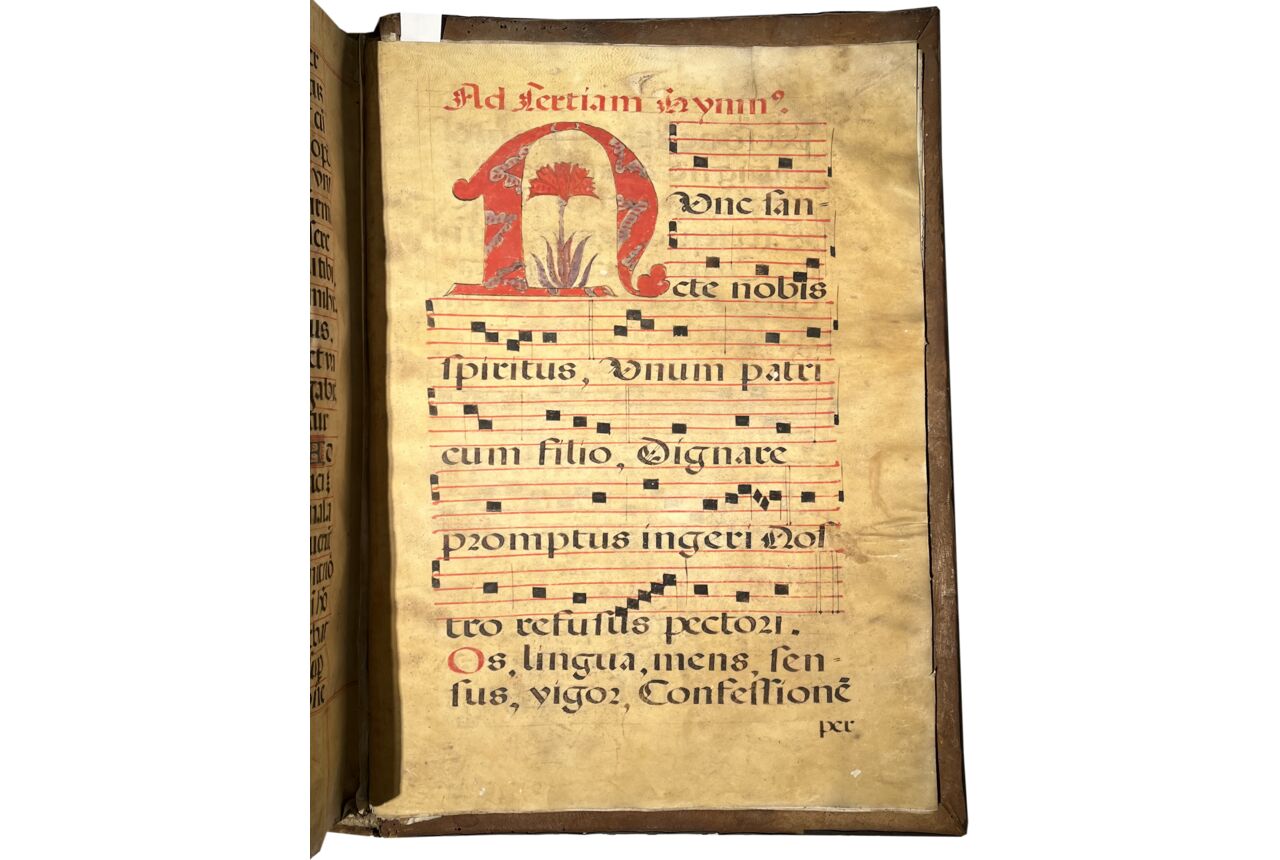 Ad Tertiam Hymnꝰ.
NVnc san-
cte nobis
spiritus, Vnum patri
cum filio, Dignare
promptus ingeri Nos
tro refusus pectori.
Os, lingua, mens, sen-
sus, vigor, Confessionē
per